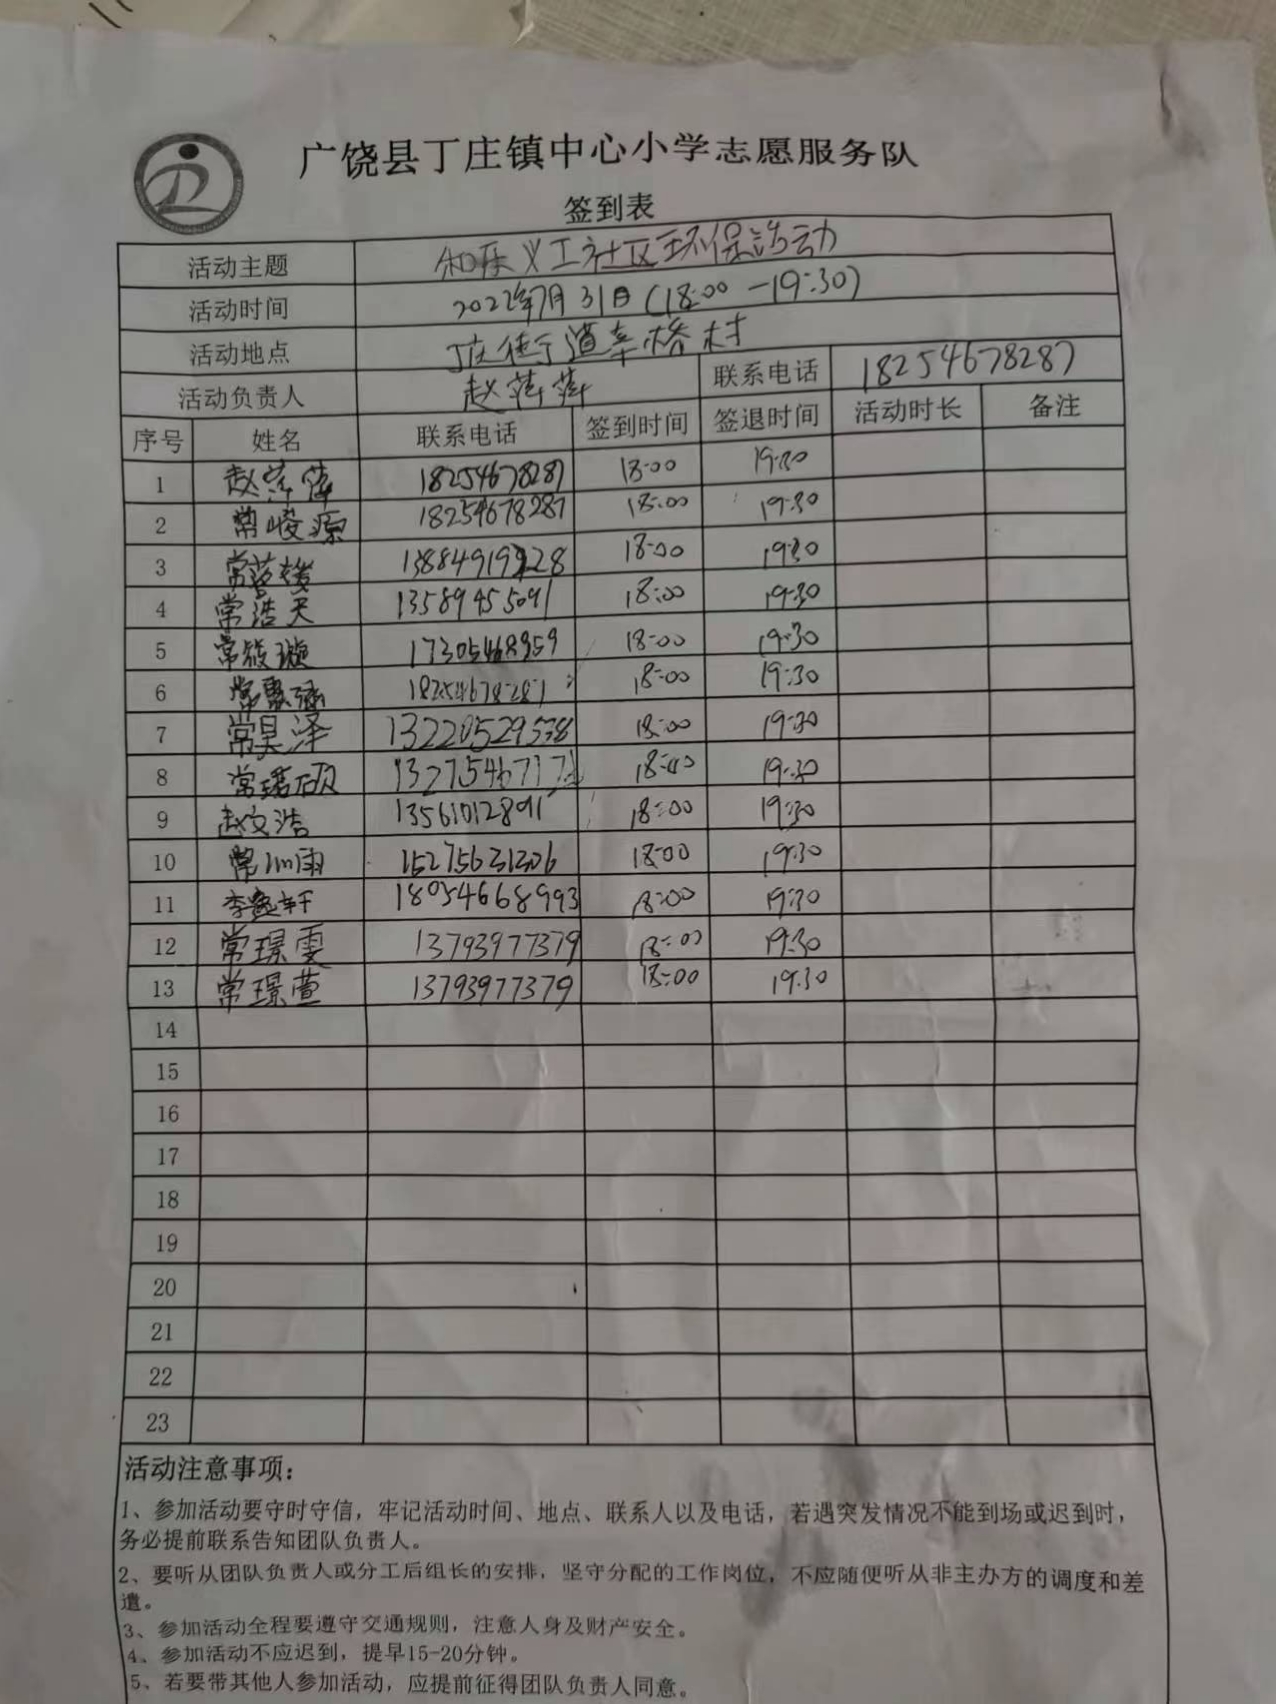 广饶县丁庄镇中心小学志愿服务队
签到表
活动主题 和乐义工社区环保活动
活动时间 2022年7月31日(18:00-19:30)
活动地点 丁庄街道辛桥村
活动负责人 赵萍萍 联系电话 18254678287
序号 姓名 联系电话 签到时间 签退时间 活动时长 备注
1 赵萍萍 18254678287 18:00 19:30
2 常峻源 18254678287 18:00 19:30
3 18:00 19:30
4 常浩天 13589455091 18:00 19:30
5 常筱璇 17305468959 18:00 19:30
6 18:00 19:30
7 常昊泽 13220529538 18:00 19:30
8 19:30
9 赵文浩 13561012891 18:00 19:30
10 15275631306 18:00 19:30
11 李鑫轩 18054668993 18:00 19:30
12 常璟雯 13793977379 18:00 19:30
13 常璟萱 13793977379 18:00 19:30
14
15
16
17
18
19
20
21
22
23
活动注意事项：
1、参加活动要守时守信，牢记活动时间、地点、联系人以及电话，若遇突发情况不能到场或迟到时，
务必提前联系告知团队负责人。
2、要听从团队负责人或分工后组长的安排，坚守分配的工作岗位，不应随便听从非主办方的调度和差
遣。
3、参加活动全程要遵守交通规则，注意人身及财产安全。
4、参加活动不应迟到，提早15-20分钟。
5、若要带其他人参加活动，应提前征得团队负责人同意。